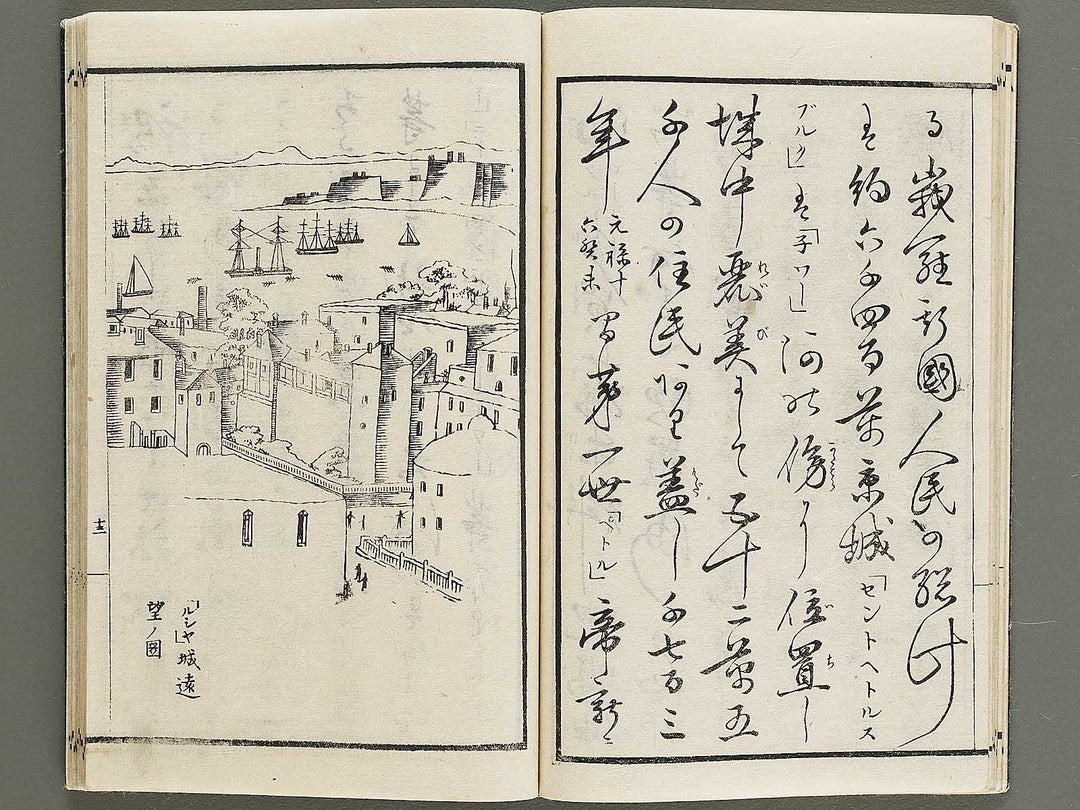 る羅斯國人民の総計
は約六千四百萬京城「セントヘトルス
ブルク」は「子ワ」河の傍らに位置し
城中麗美にして五十二萬五
千人の住民あり蓋し千七百三
年元禄十六癸未第一世「ペトル」帝新
十三
「ルシヤ」城遠
望ノ圖